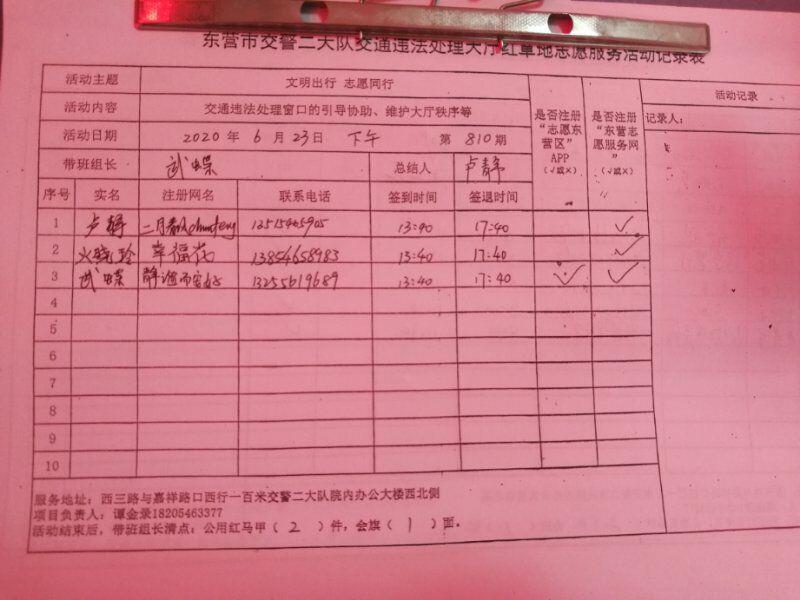 东营市交警二大队交通违法处理大厅红草地志愿服务活动记录表
活动主题 文明出行 志愿同行
活动内容 交通违法处理窗口的引导协助、维护大厅秩序等
活动日期 2020 年 6 月 23 日 下午 第 810 期
是否注册“志愿东营区”APP（√或×）
是否注册“东营志愿服务网”（√或×）
活动记录
记录人：
带班组长 武蝶 总结人 卢静
序号 实名 注册网名 联系电话 签到时间 签退时间
1 卢静 二月春风chunfeng 13:40 17:40 √
2 幸福花 13854658983 13:40 17:40 √
3 武蝶 13255619689 13:40 17:40 √ √
4
5
6
7
8
9
10
服务地址：西三路与嘉祥路口西行一百米交警二大队院内办公大楼西北侧
项目负责人：谭金录18205463377
活动结束后，带班组长清点：公用红马甲（ 2 ）件，会旗（ 1 ）面。